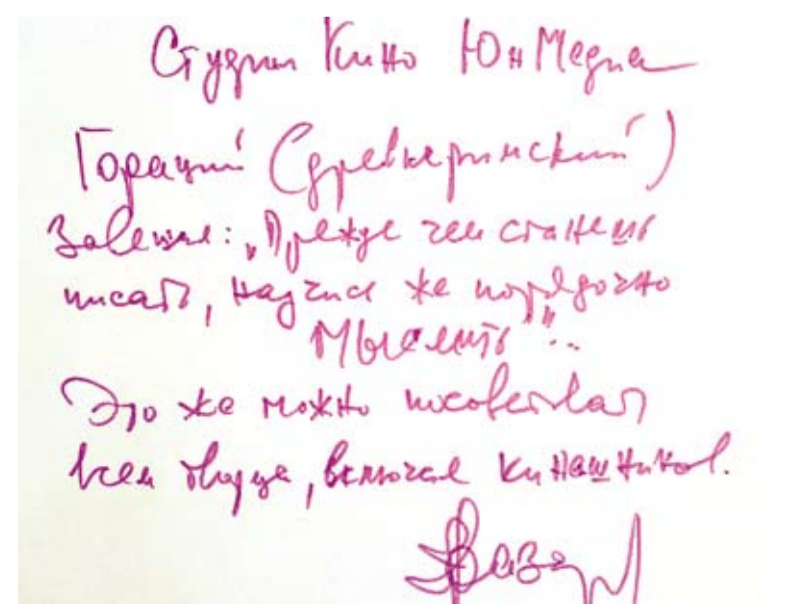 Студии Кино ЮнМедиа
Гораций (древнеримский)
завещал: „Прежде чем станешь
писать, научись же порядочно
мыслить"..
Это же можно посоветовать
всем творца, включая киношников.